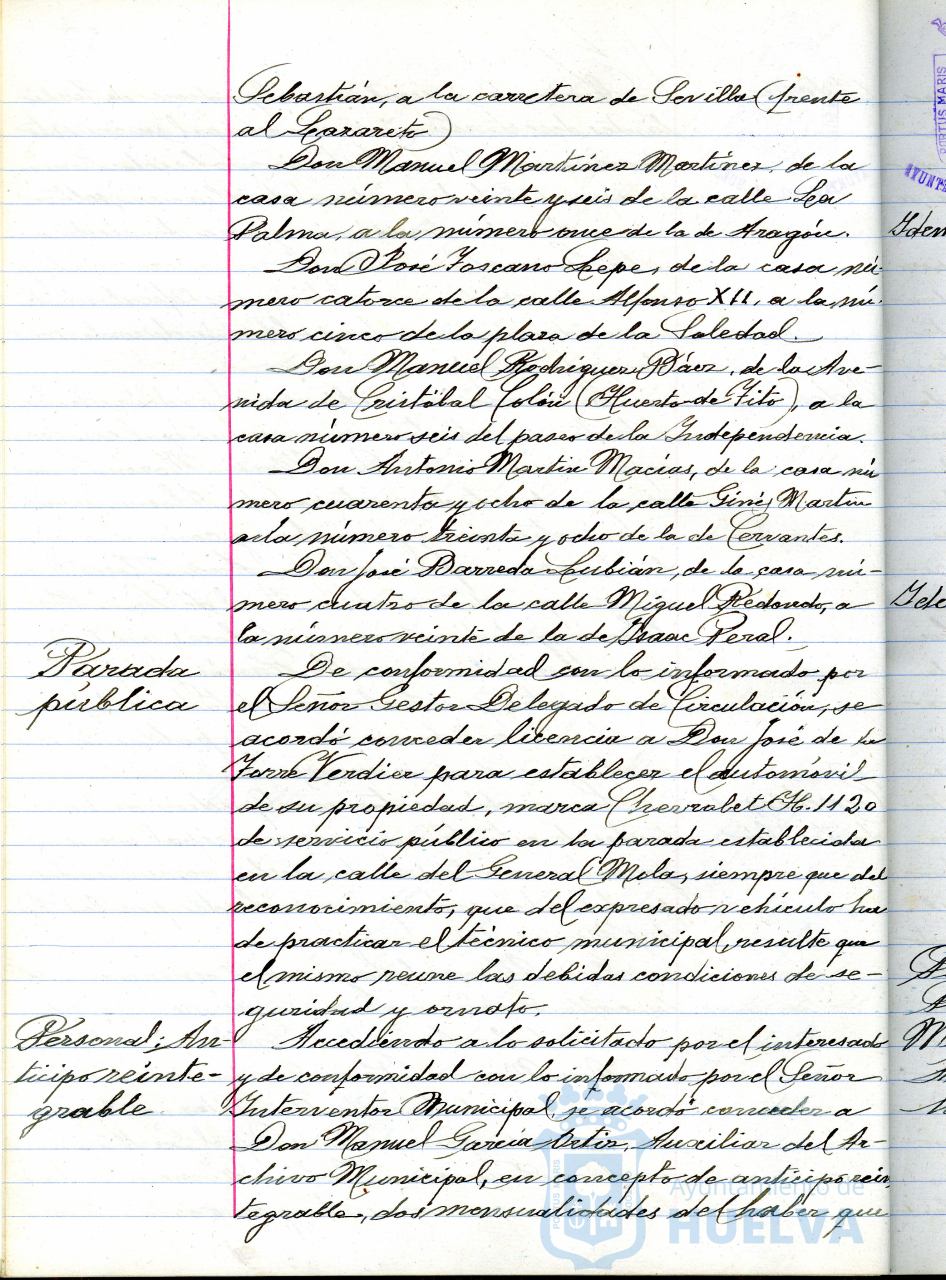 Sebastián, a la carretera de Sevilla (frente
al Lazareto)
Don Manuel Martínez Martínez, de la
casa número veinte y seis de la calle La
Palma, a la número once de la de Aragón.
Don José Toscano Lepe, de la casa nú-
mero catorce de la calle Alfonso XII, a la nú-
mero cinco de la plaza de la Soledad.
Don Manuel Rodríguez Báez, de la Ave-
nida de Cristóbal Colón (Huerto de Tito), a la
casa número seis del paseo de la Independencia.
Don Antonio Martin Macías, de la casa nú
mero cuarenta y ocho de la calle Ginés Martin
a la número treinta y ocho de la de Cervantes.
Don José Barreda Lubián, de la casa nú-
mero cuatro de la calle Miguel Redondo, a
la número veinte de la de Isaac Peral.
Parada
pública
De conformidad con lo informado por
el Señor Gestor Delegado de Circulación, se
acordó conceder licencia a Don José de la
Torre Verdier para establecer el automóvil
de su propiedad, marca Chevrolet H. 1120
de servicio público en la parada establecida
en la calle del General Mola, siempre que del
reconocimiento, que del expresado vehículo ha
de practicar el técnico municipal, resulte que
el mismo reune las debidas condiciones de se-
guridad y ornato.
Personal; An-
ticipo reinte-
grable
Accediendo a lo solicitado por el interesado
y de conformidad con lo informado por el Señor
Interventor Municipal, se acordó conceder a
Don Manuel García Ortiz, Auxiliar del Ar-
chivo Municipal, en concepto de anticipo rein
tegrable, dos mensualidades del haber que
Ayuntamiento de
HUELVA
PORTUS MARIS